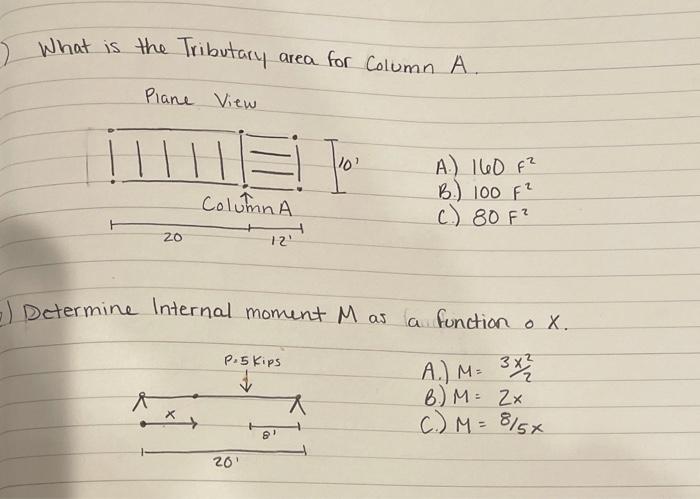 ) What is the Tributary area for Column A.
Plane View
10'
A.) 160 F²
B.) 100 F²
C.) 80 F²
Column A
20
12'
) Determine Internal moment M as a function o X.
P=5 Kips
A.) M= 3x²/2
B.) M= 2x
C.) M = 8/5x
x
8'
20'